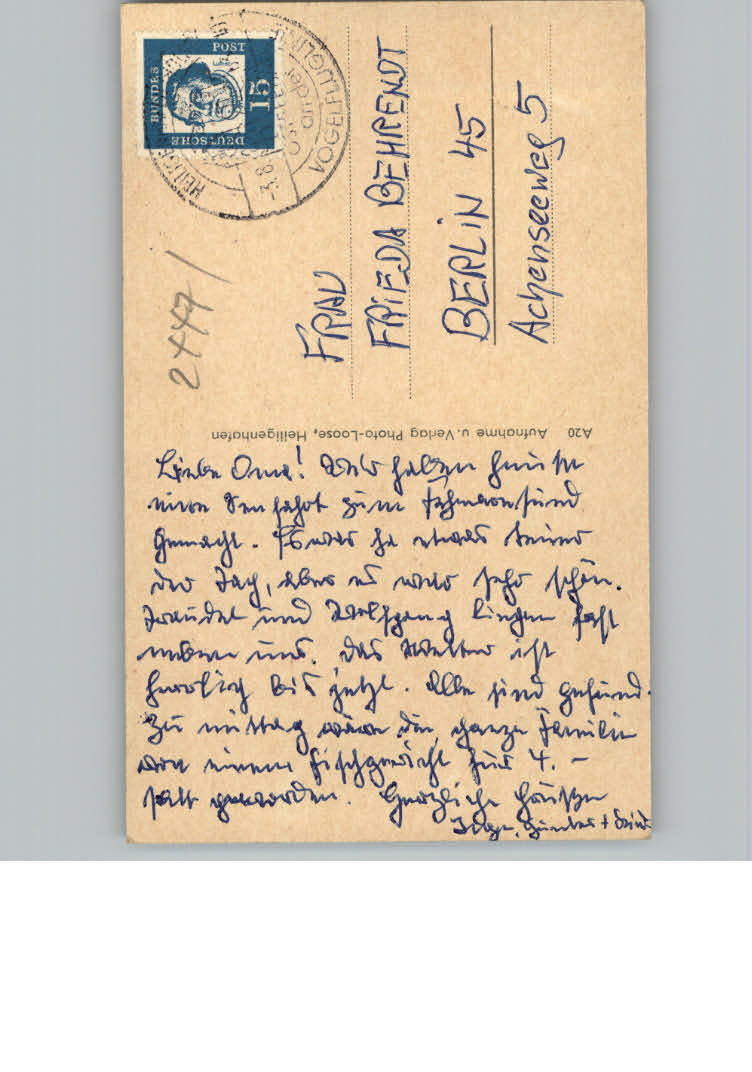 DEUTSCHE
BUNDES
POST
15
VOGELFLUGLI
HEILIGE
2447/
FRAU
FRIEDA BEHRENDT
BERLIN 45
Achenseeweg 5
A20 Aufnahme u. Verlag Photo-Loose, Heiligenhafen
Liebe Oma! Wir haben heute
eine Seefahrt zum Fehmarnsund
gemacht. Es war ja etwas
der Tag, aber es war sehr schön.
Traudel und Wolfgang liegen fast
neben uns. Das Wetter ist
herrlich bis jetzt. Alle sind gesund.
Zu Mittag wäre die ganze Familie
von einem Fischgericht für 4.-
satt geworden. Herzliche Grüße
Inge, Günter +